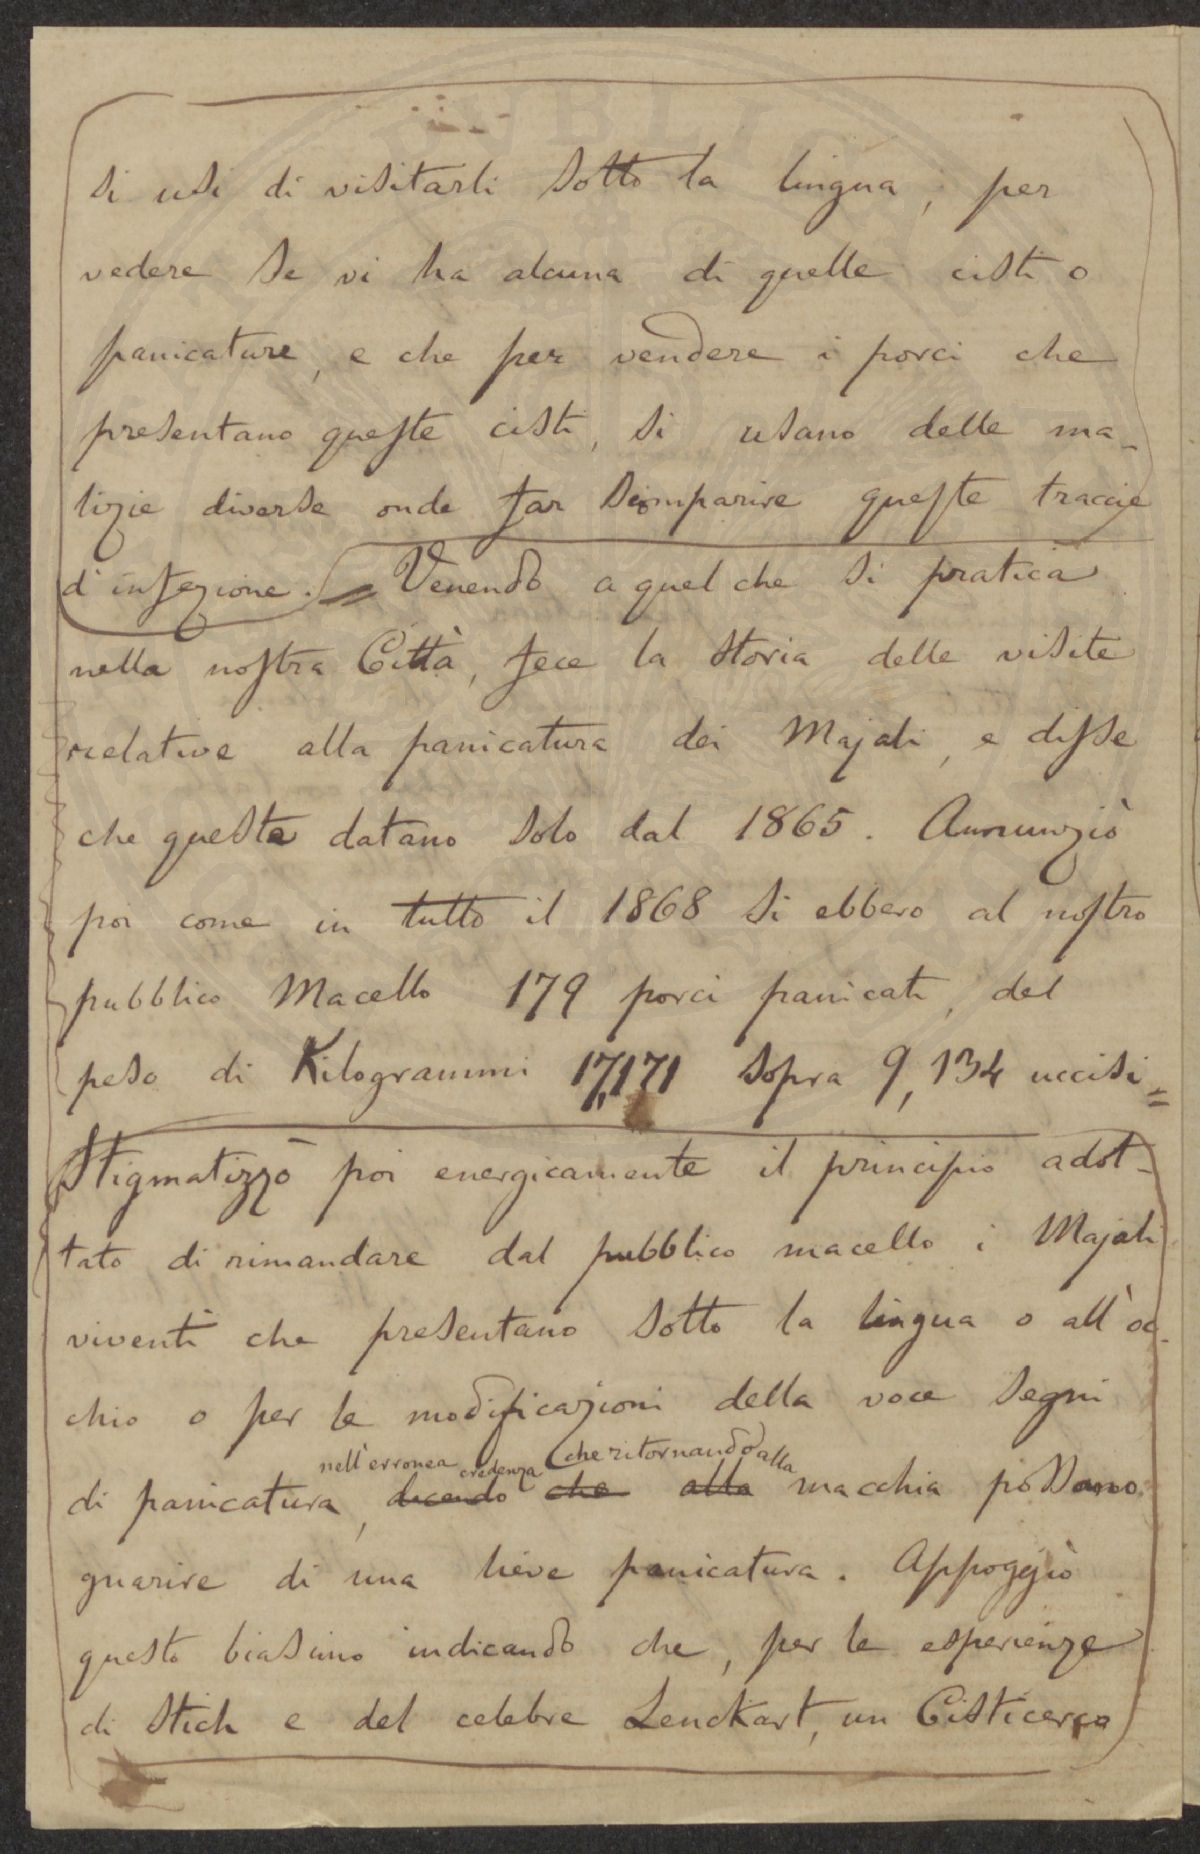 si usi di visitarli sotto la lingua, per
vedere se vi ha alcuna di quelle cisti o
panicature, e che per vendere i porci che
presentano queste cisti, si usano delle ma-
lizie diverse onde far scomparire queste traccie
d'infezione. = Venendo a quel che si pratica
nella nostra Città, fece la storia delle visite
relative alla panicatura dei Majali, e disse
che queste datano solo dal 1865. Annunziò
poi come in tutto il 1868 si ebbero al nostro
pubblico Macello 179 porci panicati, del
peso di Kilogrammi 17,171 sopra 9,134 uccisi =
Stigmatizzò poi energicamente il principio adot-
tato di rimandare dal pubblico macello i Majali
viventi che presentano sotto la lingua o all'oc-
chio o per le modificazioni della voce segni
nell'erronea credenza che ritornando alla
di panicatura, dicendo che alla macchia possano
guarire di una lieve panicatura. Appoggiò
questo biasimo indicando che, per le esperienze
di Stich e del celebre Leuckart, un Cisticerco